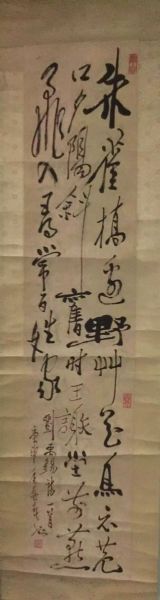 朱雀橋邊野艸花烏衣巷
口夕陽斜舊時王謝堂前燕
飛入尋常百姓家
劉禹錫詩一首